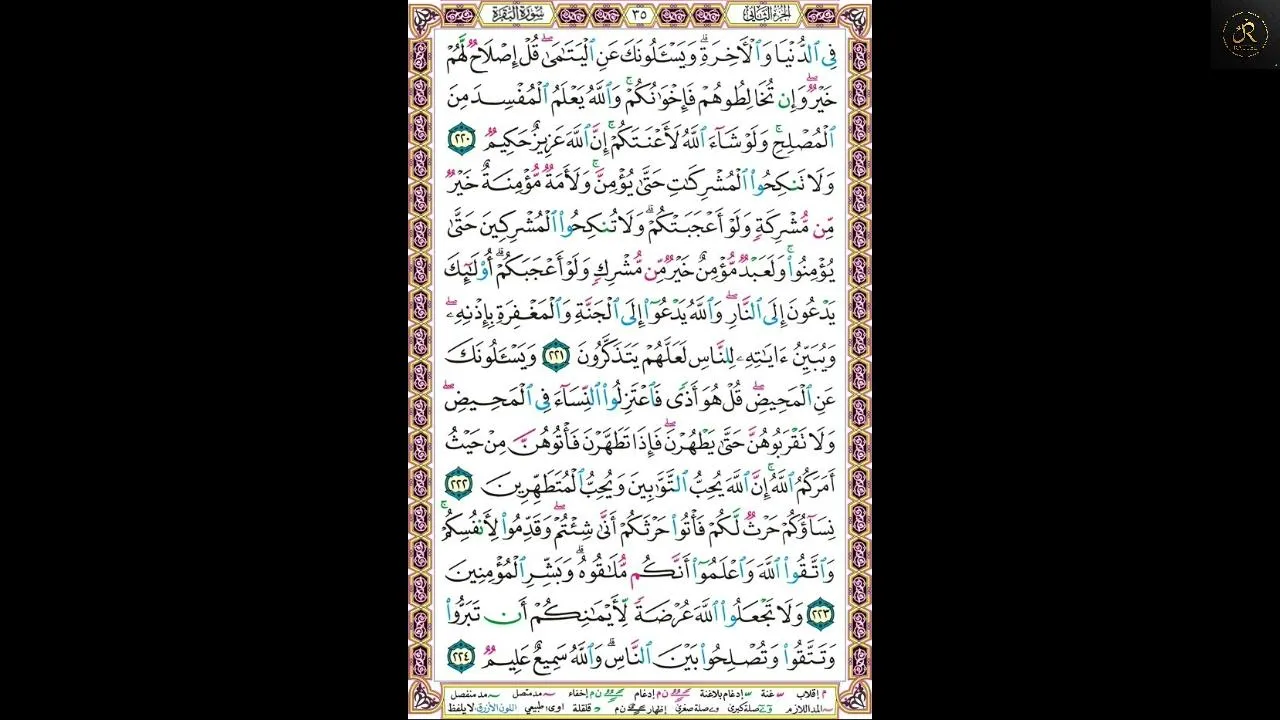 الجزء الثاني ٣٥ سورة البقرة
فِي الدُّنْيَا وَالْآخِرَةِ ۗ وَيَسْـَٔلُونَكَ عَنِ الْيَتَامَىٰ ۖ قُلْ إِصْلَاحٌ لَّهُمْ
خَيْرٌ ۖ وَإِن تُخَالِطُوهُمْ فَإِخْوَانُكُمْ ۚ وَاللَّهُ يَعْلَمُ الْمُفْسِدَ مِنَ
الْمُصْلِحِ ۚ وَلَوْ شَاءَ اللَّهُ لَأَعْنَتَكُمْ ۚ إِنَّ اللَّهَ عَزِيزٌ حَكِيمٌ ٢٢٠
وَلَا تَنكِحُوا الْمُشْرِكَاتِ حَتَّىٰ يُؤْمِنَّ ۚ وَلَأَمَةٌ مُّؤْمِنَةٌ خَيْرٌ
مِّن مُّشْرِكَةٍ وَلَوْ أَعْجَبَتْكُمْ ۗ وَلَا تُنكِحُوا الْمُشْرِكِينَ حَتَّىٰ
يُؤْمِنُوا ۚ وَلَعَبْدٌ مُّؤْمِنٌ خَيْرٌ مِّن مُّشْرِكٍ وَلَوْ أَعْجَبَكُمْ ۗ أُولَٰئِكَ
يَدْعُونَ إِلَى النَّارِ ۖ وَاللَّهُ يَدْعُوا إِلَى الْجَنَّةِ وَالْمَغْفِرَةِ بِإِذْنِهِ ۖ
وَيُبَيِّنُ ءَايَاتِهِ لِلنَّاسِ لَعَلَّهُمْ يَتَذَكَّرُونَ ٢٢١ وَيَسْـَٔلُونَكَ
عَنِ الْمَحِيضِ ۖ قُلْ هُوَ أَذًى فَاعْتَزِلُوا النِّسَاءَ فِي الْمَحِيضِ ۖ
وَلَا تَقْرَبُوهُنَّ حَتَّىٰ يَطْهُرْنَ ۖ فَإِذَا تَطَهَّرْنَ فَأْتُوهُنَّ مِنْ حَيْثُ
أَمَرَكُمُ اللَّهُ ۚ إِنَّ اللَّهَ يُحِبُّ التَّوَّابِينَ وَيُحِبُّ الْمُتَطَهِّرِينَ ٢٢٢
نِسَاؤُكُمْ حَرْثٌ لَّكُمْ فَأْتُوا حَرْثَكُمْ أَنَّىٰ شِئْتُمْ ۖ وَقَدِّمُوا لِأَنفُسِكُمْ ۚ
وَاتَّقُوا اللَّهَ وَاعْلَمُوا أَنَّكُم مُّلَاقُوهُ ۗ وَبَشِّرِ الْمُؤْمِنِينَ
٢٢٣ وَلَا تَجْعَلُوا اللَّهَ عُرْضَةً لِّأَيْمَانِكُمْ أَن تَبَرُّوا
وَتَتَّقُوا وَتُصْلِحُوا بَيْنَ النَّاسِ ۗ وَاللَّهُ سَمِيعٌ عَلِيمٌ ٢٢٤
م إقلاب غنة إدغام بلاغنة ن م إدغام ن م إخفاء مد متصل مد منفصل
المد اللازم صلة كبرى صلة صغرى إظهار ن م قلقلة اوى طبيعي اللون الأزرق لا يلفظ